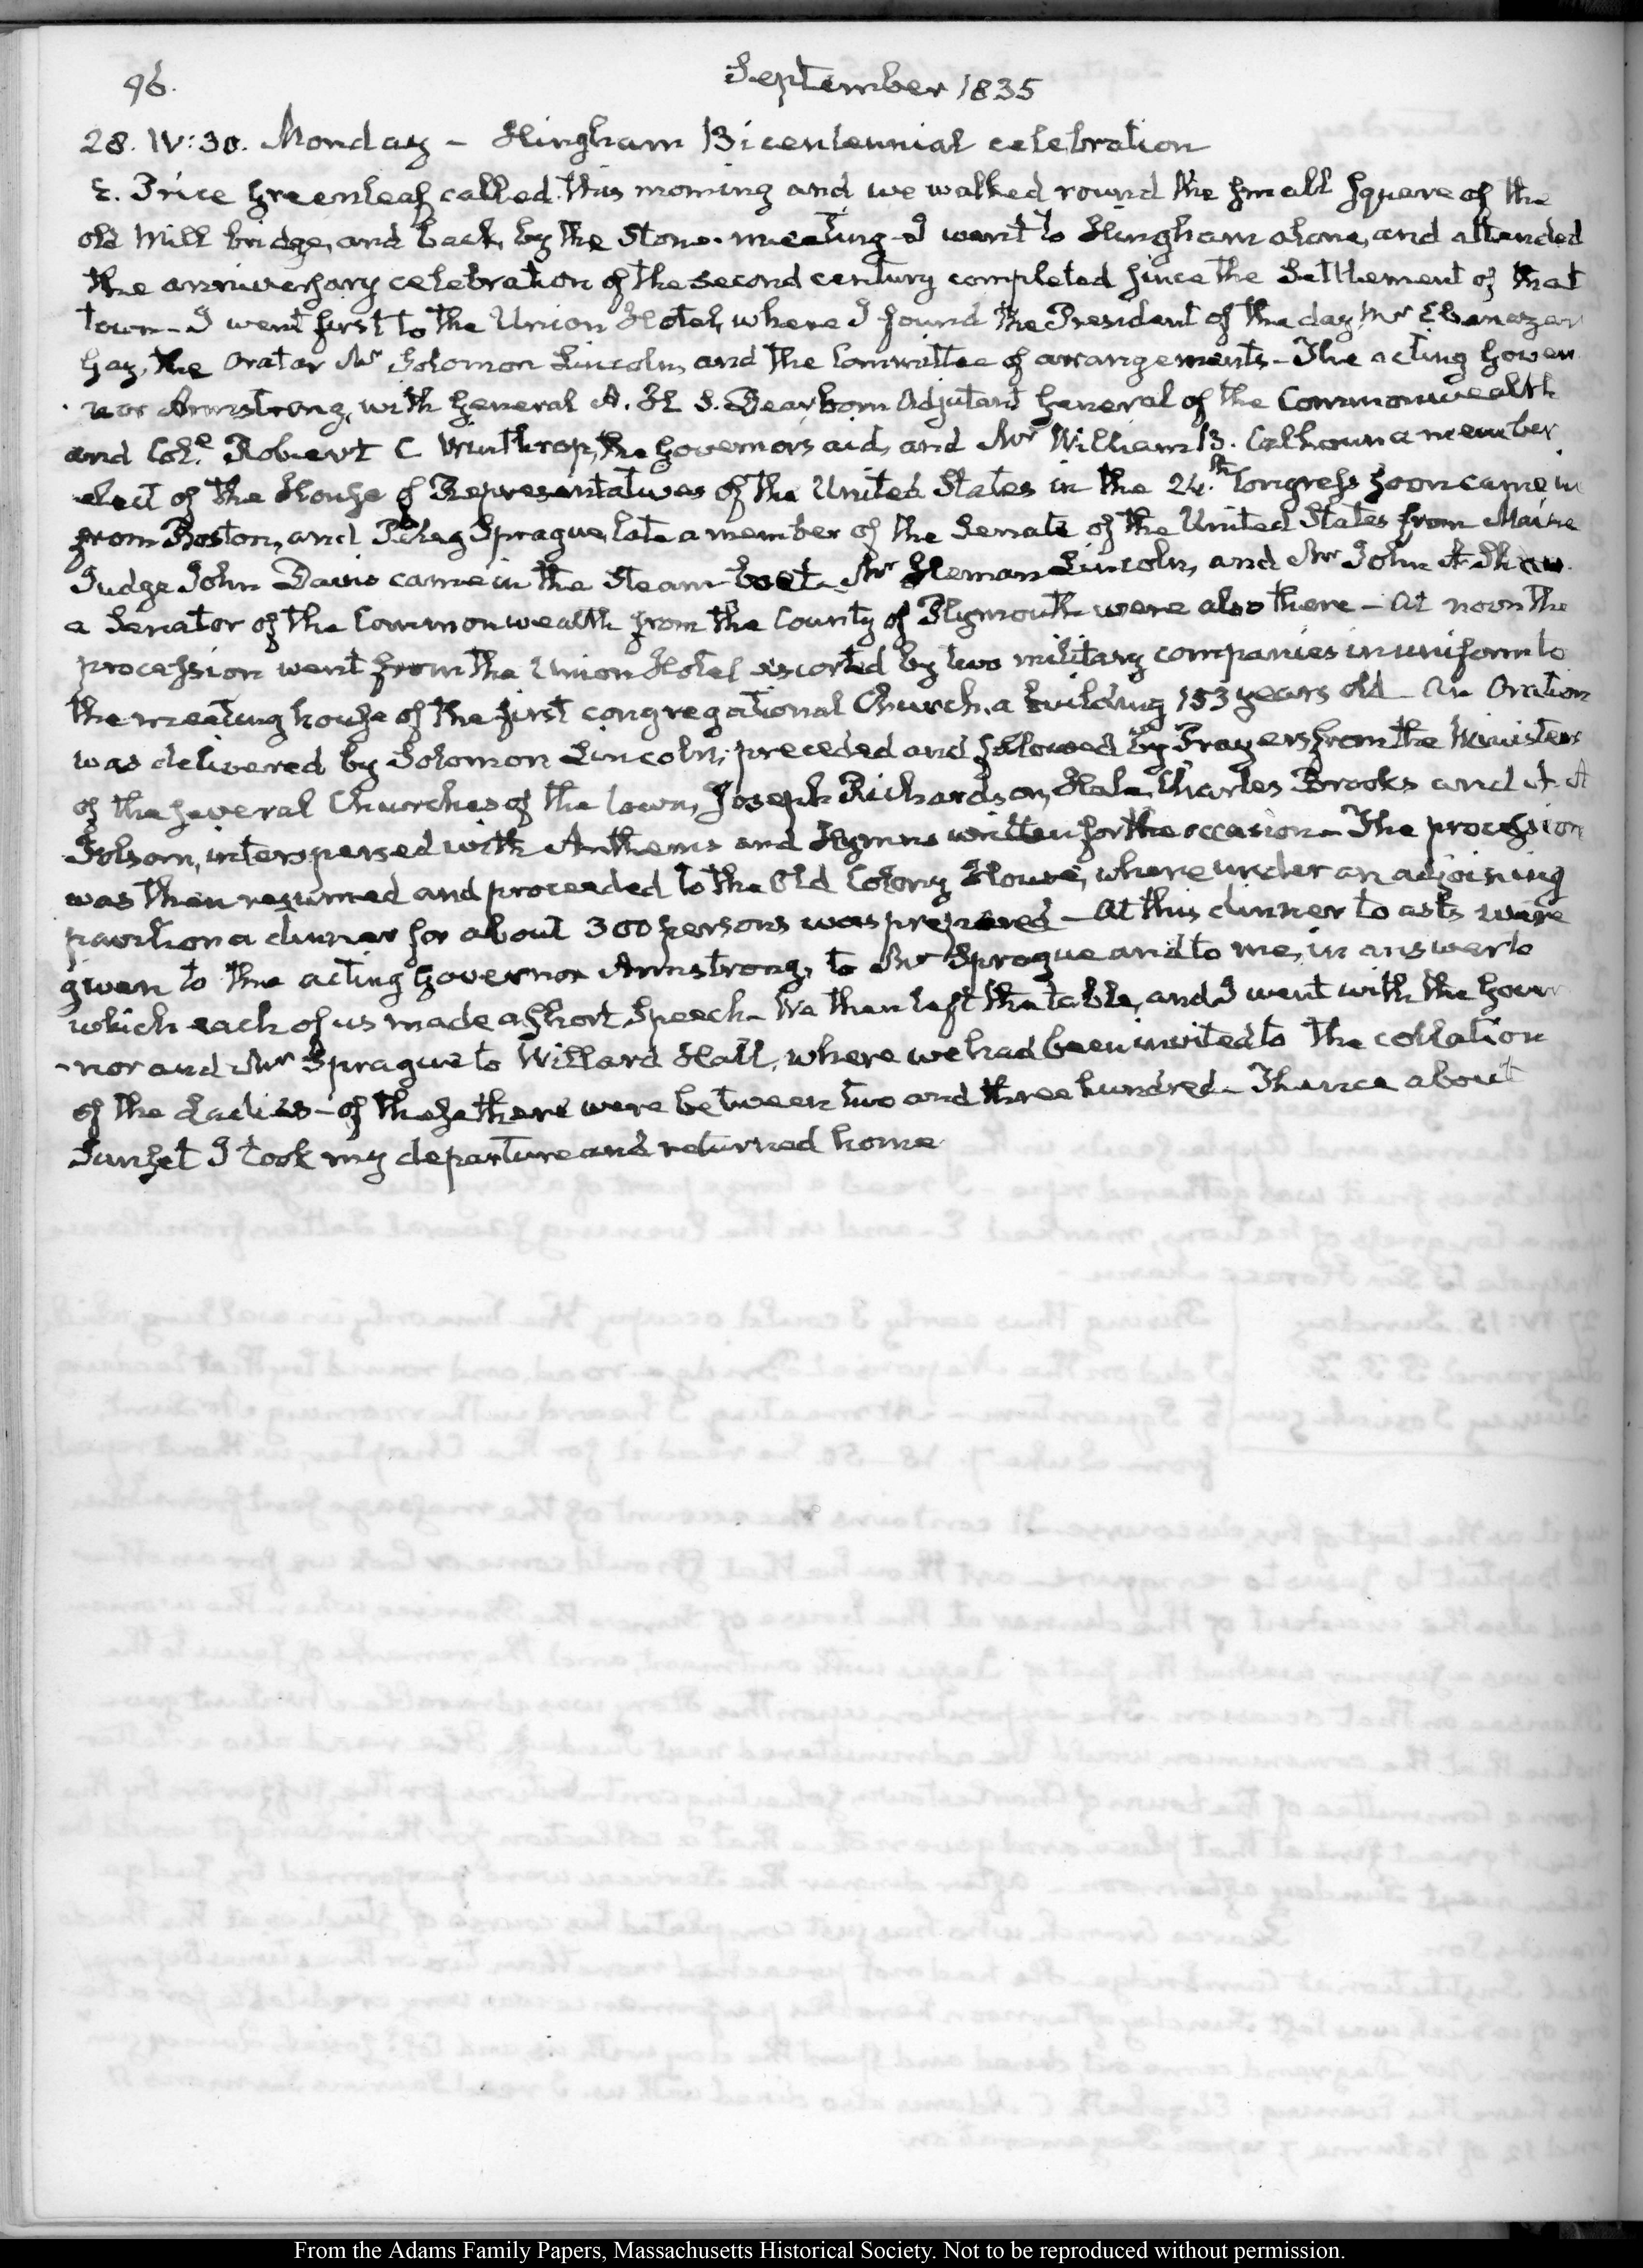 96.
September 1835
28. IV:30. Monday – Hingham Bicentennial celebration
E. Price Greenleaf called this morning and we walked round the small square of the
old Mill bridge, and back, by the Stone. meeting - I went to Hingham alone, and attended
the anniversary celebration of the second century completed since the Settlement of that
town - I went first to the Union Hotel, where I found the President of the day Mr Ebenezer
Gay, the Orator Mr Solomon Lincoln, and the Committee of arrangements - The acting Gover
nor Armstrong, with General H. A. S. Dearborn Adjutant General of the Commonwealth
and Col.e Robert C Winthrop, the Governor's aid, and Mr William B. Calhoun a member
elect of the House of Representatives of the United States in the 24.th Congress soon came in
from Boston, and Peleg Sprague, late a member of the Senate of the United States from Maine
Judge John Davis came in the Steam-boat - Mr Heman Lincoln, and Mr John A Shaw.
a Senator of the Commonwealth from the County of Plymouth were also there - At noon the
procession went from the Union Hotel escorted by two military companies in uniform to
the meeting house of the first congregational Church, a building 153 years old - An Oration
was delivered by Solomon Lincoln; preceded and followed by Prayers from the Ministers
of the several Churches of the town, Joseph Richardson, Hale, Charles Brooks and A. A
Folsom, interspersed with Anthems and Hymns written for the occasion - The procession
was then resumed and proceeded to the Old Colony House, where under an adjoining
pavilion a dinner for about 300 persons was prepared - At this dinner toasts were
given to the acting Governor Armstrong, to Mr Sprague and to me, in answer to
which each of us made a short Speech - We then left the table, and I went with the Gover
-nor and Mr Sprague to Willard Hall, where we had been invited to the collation
of the Ladies - of these there were between two and three hundred - Thence about
Sunset I took my departure and returned home
From the Adams Family Papers, Massachusetts Historical Society. Not to be reproduced without permission.